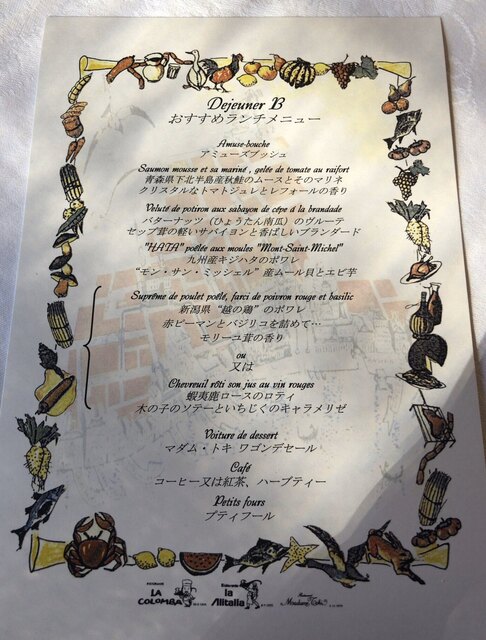 Dejeuner B
おすすめランチメニュー
Amuse-bouche
アミューズブッシュ
Saumon mousse et sa mariné, gelée de tomate au raifort
青森県下北半島産秋鮭のムースとそのマリネ
クリスタルなトマトジュレとレフォールの香り
Veluté de potiron aux sabayon de cêpe à la brandade
バターナッツ（ひょうたん南瓜）のヴルーテ
セップ茸の軽いサバイヨンと香ばしいブランダード
"HATA" poêlée aux moules "Mont-Saint-Michel"
九州産キジハタのポワレ
“モン・サン・ミッシェル”産ムール貝とエビ芋
Suprême de poulet poêlé, farci de poivron rouge et basilic
新潟県“越の鶏”のポワレ
赤ピーマンとバジリコを詰めて…
モリーユ茸の香り
ou
又は
Chevreuil rôti son jus au vin rouges
蝦夷鹿ロースのロティ
木の子のソテーといちじくのキャラメリゼ
Voiture de dessert
マダム・トキ ワゴンデセール
Café
コーヒー又は紅茶、ハーブティー
Petits fours
プティフール
LA COLOMBA
la Alitalia
Madame Toki